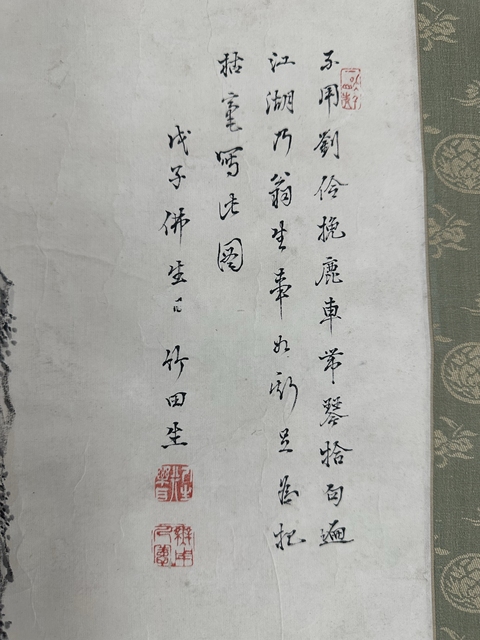 不用劉伶挽鹿車常琴拾句遍
江湖乃翁生事如斯足為把
寫此圖
戊子佛生日 竹田生